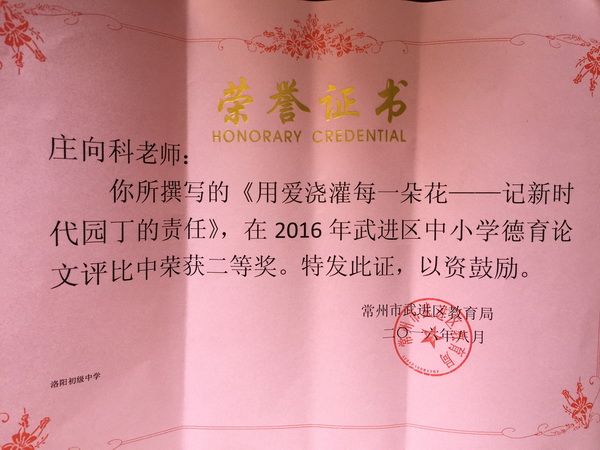 荣誉证书
HONORARY CREDENTIAL
庄向科老师：
你所撰写的《用爱浇灌每一朵花——记新时
代园丁的责任》，在2016年武进区中小学德育论
文评比中荣获二等奖。特发此证，以资鼓励。
常州市武进区教育局
二〇一六年八月
洛阳初级中学